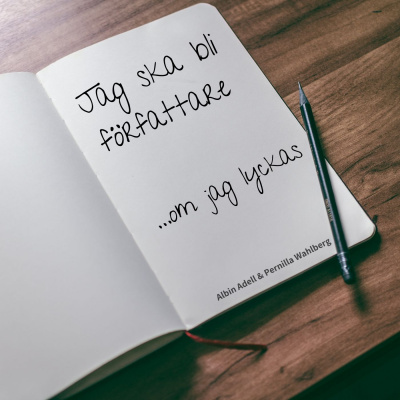 Jag ska bli
författare
...om jag lyckas
Albin Adell & Pernilla Wahlberg